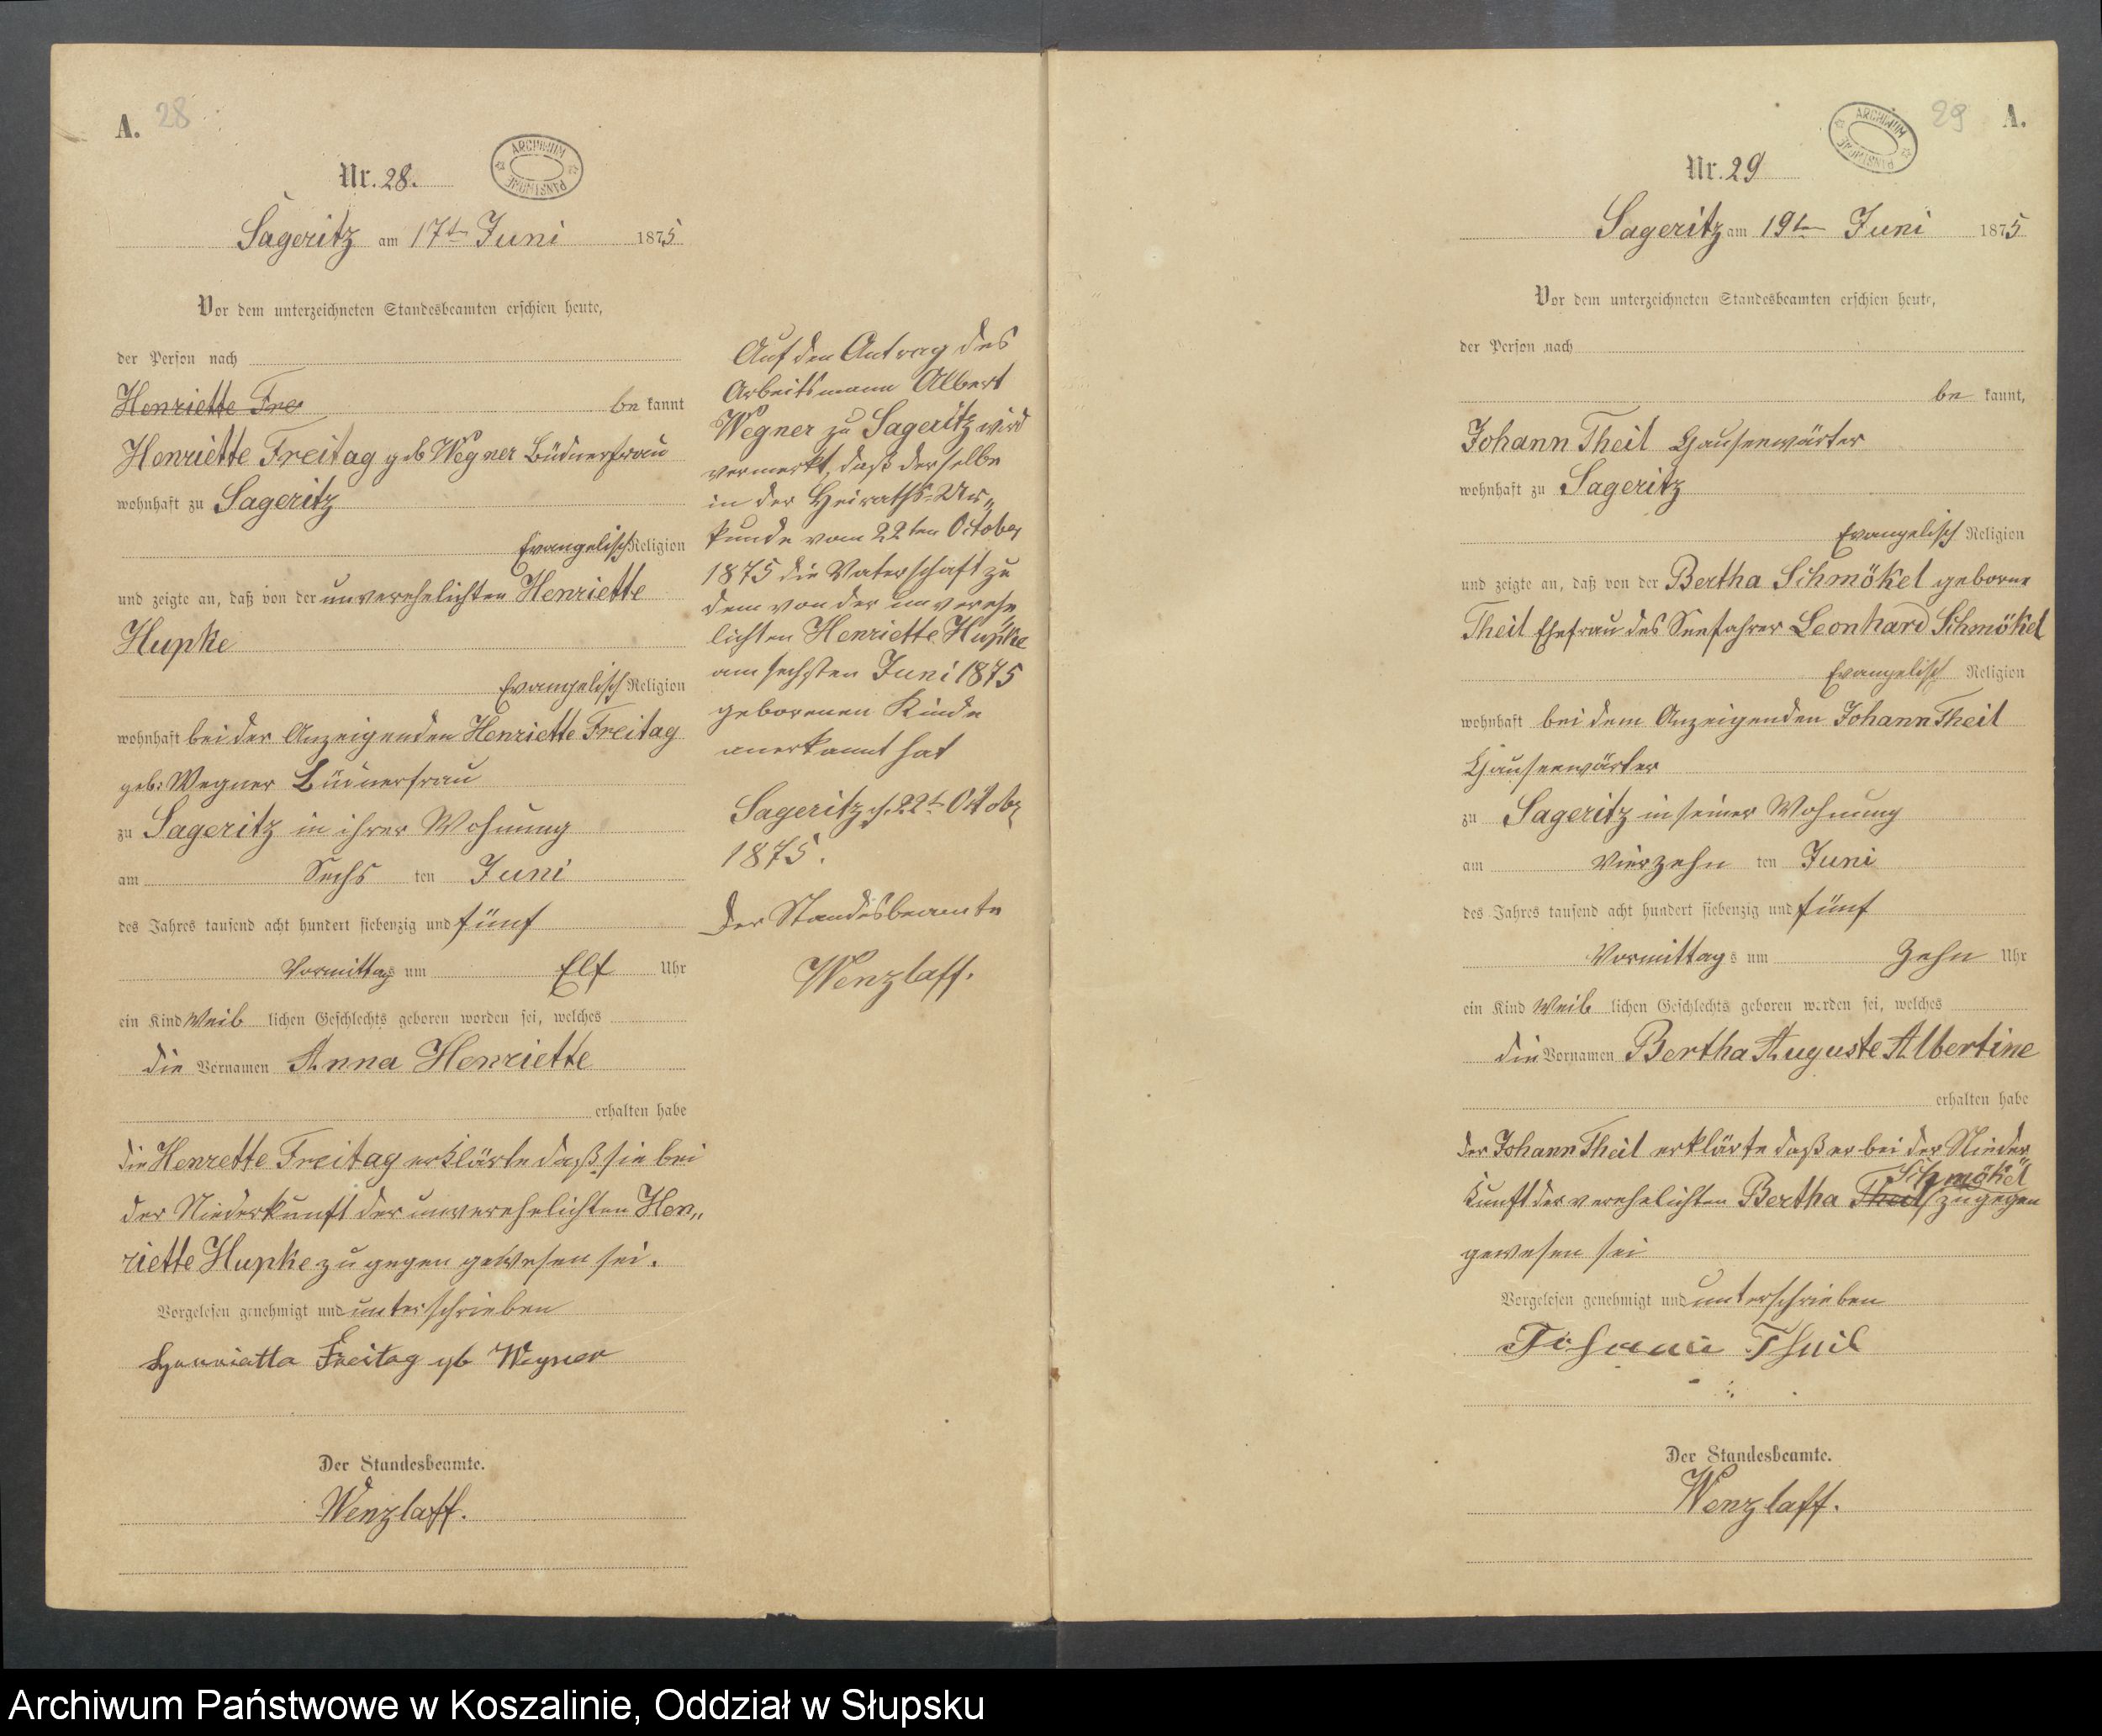 A. 28
ARCHIWUM PAŃSTWOWE
Nr. 28.
Sageritz am 17ten Juni 1875
Vor dem unterzeichneten Standesbeamten erschien heute,
der Person nach
Henriette Fre
be kannt
Henriette Freitag geb Wegner Büdnerfrau
wohnhaft zu Sageritz
Evangelisch Religion
und zeigte an, daß von der unverehelichten Henriette
Hupke
Evangelisch Religion
wohnhaft bei der Anzeigenden Henriette Freitag
geb: Wegner Büdnerfrau
zu Sageritz in ihrer Wohnung
am Sechs ten Juni
des Jahres tausend acht hundert siebenzig und fünf
Vormittags um Elf Uhr
ein Kind Weib lichen Geschlechts geboren worden sei, welches
die Vornamen Anna Henriette
erhalten habe
die Henrette Freitag erklärte daß sie bei
der Niederkunft der unverehelichten Hen„
riette Hupke zugegen gewesen sei.
Vorgelesen genehmigt und unterschrieben
Henriette Freitag gb Wegner
Der Standesbeamte.
Wenzlaff.
Auf den Antrag des
Arbeitsmann Albert
Wegner zu Sageritz wird
vermerkt, daß derselbe
in der Heiraths-Ur„
kunde vom 22ten October
1875 die Vaterschaft zu
dem von der unvereh„
lichten Henriette Hupke
am sechsten Juni 1875
geborenen Kinde
anerkannt hat
Sageritz d. 22t Octobr
1875.
Der Standesbeamte
Wenzlaff.
29 A.
ARCHIWUM PAŃSTWOWE
Nr. 29
Sageritz am 19ten Juni 1875
Vor dem unterzeichneten Standesbeamten erschien heute,
der Person nach
be kannt,
Johann Theil Hausenwärter
wohnhaft zu Sageritz
Evangelisch Religion
und zeigte an, daß von der Bertha Schmökel geborne
Theil Ehefrau des Seefahrer Leonhard Schmökel
Evangelisch Religion
wohnhaft bei dem Anzeigenden Johann Theil
Hausenwärter
zu Sageritz in seiner Wohnung
am Vierzehn ten Juni
des Jahres tausend acht hundert siebenzig und fünf
Vormittags um Zehn Uhr
ein Kind Weib lichen Geschlechts geboren worden sei, welches
die Vornamen Bertha Auguste Albertine
erhalten habe
der Johann Theil erklärte daß er bei der Nieder„
Schmökel
kunft der verehelichten Bertha Theil zugegen
gewesen sei
Vorgelesen genehmigt und unterschrieben
Johann Theil
Der Standesbeamte.
Wenzlaff.
Archiwum Państwowe w Koszalinie, Oddział w Słupsku